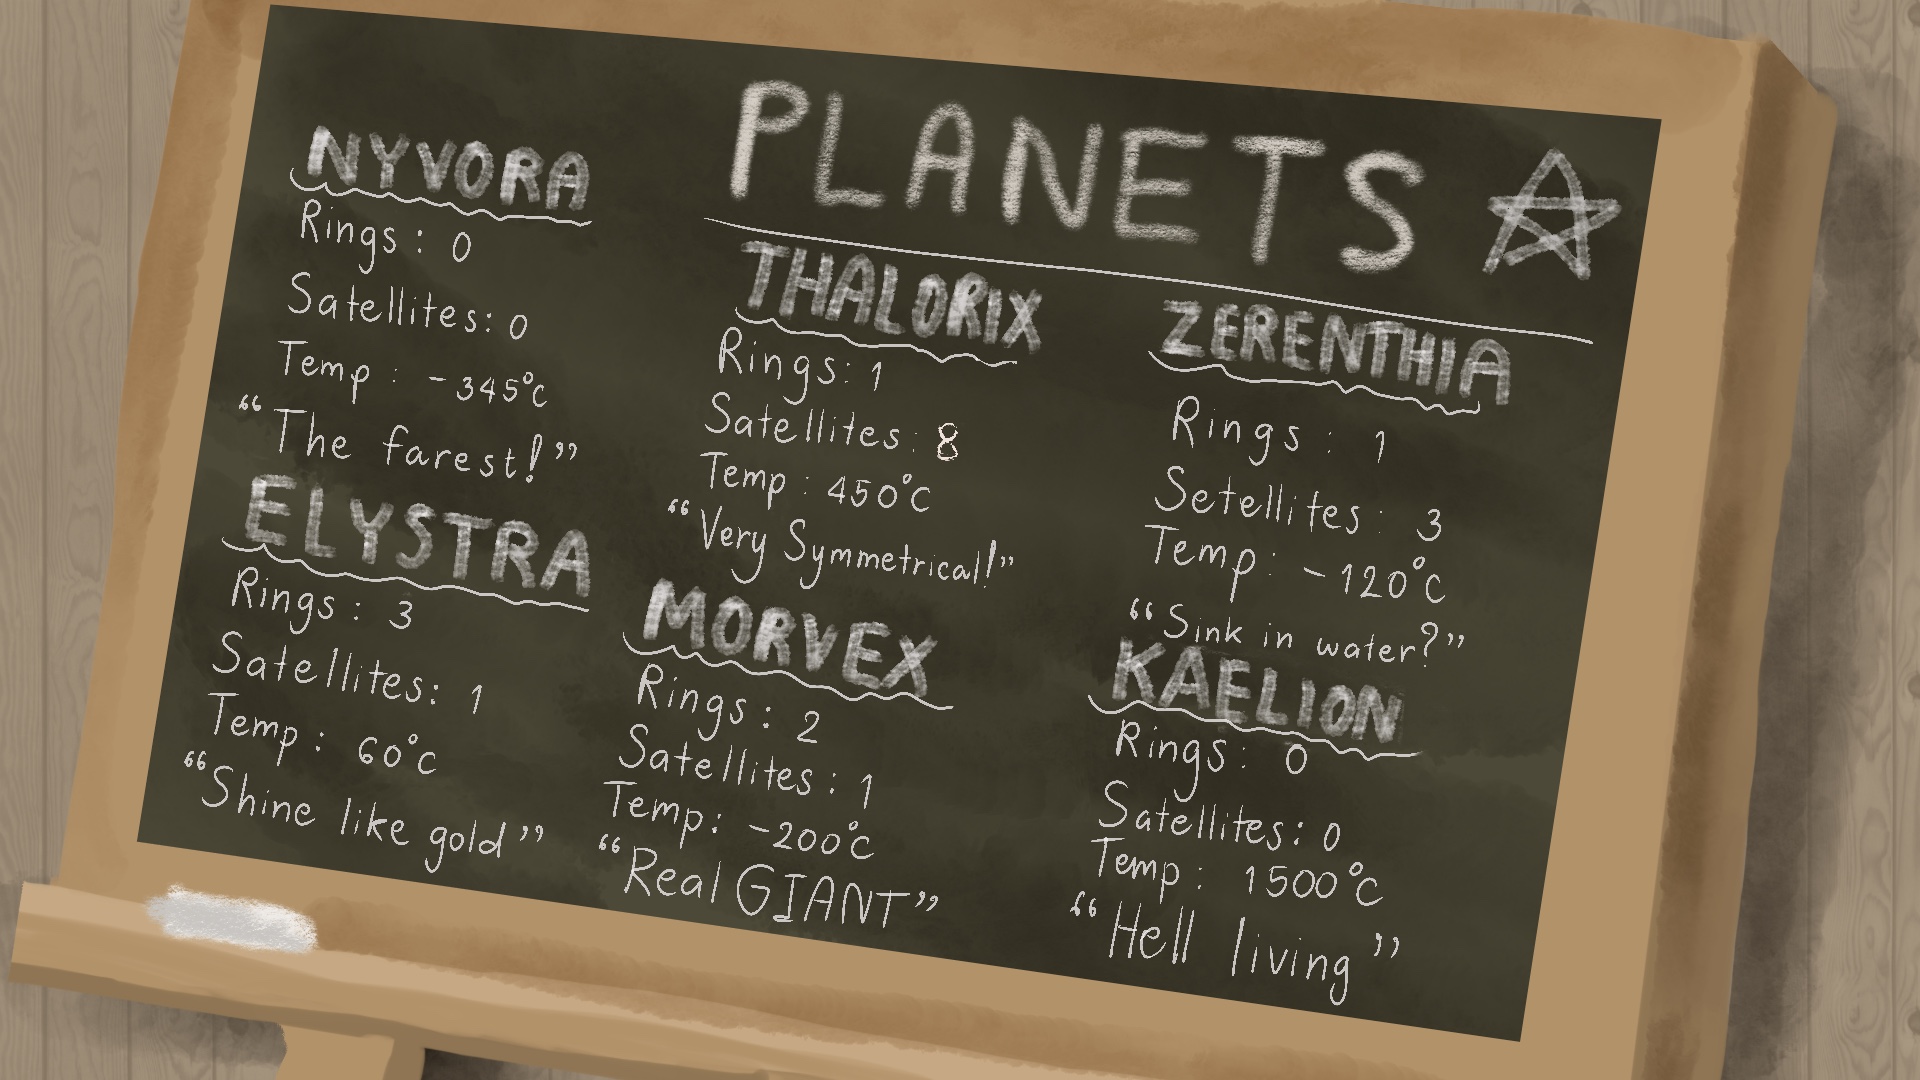 PLANETS
NYVORA
Rings : 0
Satellites: 0
Temp : -345°c
“The farest!”
ELYSTRA
Rings : 3
Satellites: 1
Temp : 60°c
“Shine like gold”
THALORIX
Rings: 1
Satellites: 8
Temp : 450°c
“Very Symmetrical!”
MORVEX
Rings : 2
Satellites : 1
Temp: -200°c
“Real GIANT”
ZERENTHIA
Rings : 1
Setellites: 3
Temp : -120°c
“Sink in water?”
KAELION
Rings: 0
Satellites: 0
Temp : 1500°c
“Hell living”